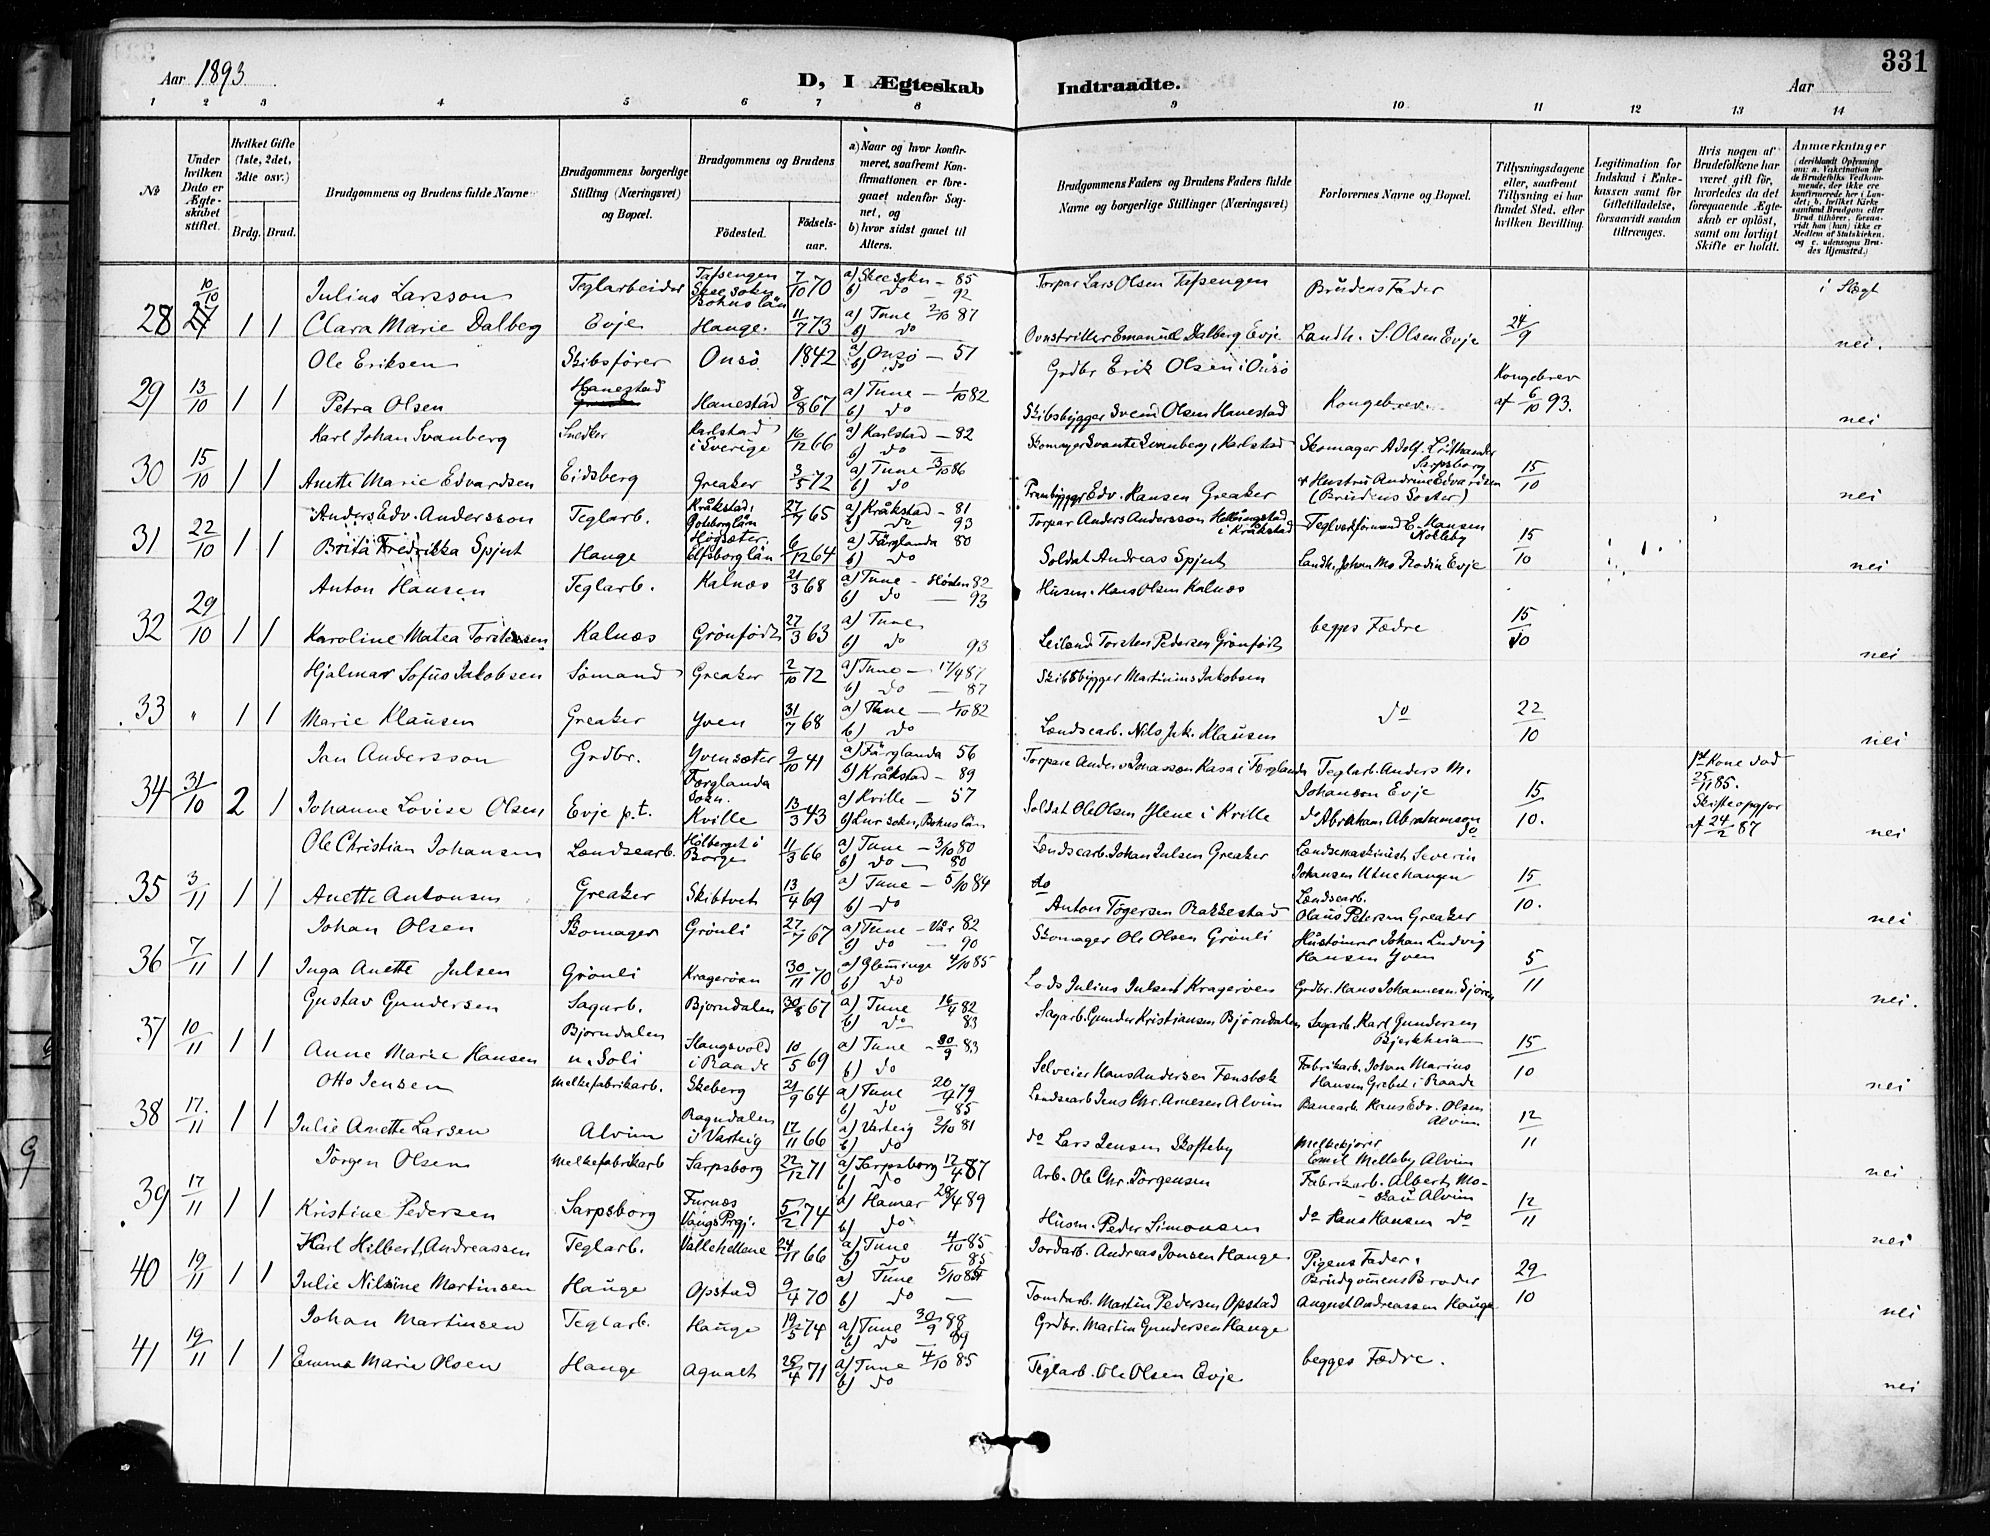 331
Aar 1893
D, I Ægteskab Indtraadte.
Aar
1 2 3 4 5 6 7 8 9 10 11 12 13 14
No
Under hvilken Dato er Ægteskabet stiftet.
Hvilket Gifte (1ste, 2det, 3die osv.)
Brdg. Brud.
Brudgommens og Brudens fulde Navne
Brudgommens borgerlige Stilling (Næringsvei) og Bopæl.
Brudgommens og Brudens
Fødested.
Fødselsaar.
a) Naar og hvor konfirmeret, saafremt Konfirmationen er foregaaet udenfor Sognet, og
b) hvor sidst gaaet til Alters.
Brudgommens Faders og Brudens Faders fulde Navne og borgerlige Stillinger (Næringsvei)
Forlovernes Navne og Bopæl.
Tillysningsdagene eller, saafremt Tillysning ei har fundet Sted, efter hvilken Bevilling.
Legitimation for Indskud i Enkekassen samt for Giftetilladelse, forsaavidt saadan tiltrænges.
Hvis nogen af Brudefolkene har været gift før, hvorledes da det foregaaende Ægteskab er opløst, samt om lovligt Skifte er holdt.
Anmærkninger
Julius Larsson Teglarbeider Skee sokn Bohuslän 7/10 70 a) Skee sokn – 85 b) do – 92 Torpar Lars Olsen Brudens Fader i Slægt
28 10/10 1 1 Clara Marie Dalberg Evje Hauge. 11/7 73 a) Tune 2/10 87 b) do Emanuel Dalberg Evje Landh. S. Olsen Evje 24/9 nei.
Ole Eriksen Skibsfører Onsö 1842 a) Onsö – 57 b) do Grdbr Erik Olsen i Onsö Kongebrev
29 13/10 1 1 Petra Olsen Hanestad Hanestad 8/8 67 a) Tune – 1/10 82 b) do Skibsbygger Svend Olsen Hanestad Kongebrev. af 6/10 93. nei
Karl Johan Svanberg Snedker Karlstad i Sverige 16/12 66 a) Karlstad – 82 b) do – Skomager Svante Svanberg, Karlstad Skomager Adolf Sarpsborg
30 15/10 1 1 Anette Marie Edvardsen Eidsberg Greaker 3/5 72 a) Tune 3/10 86 b) do Prambygger Edv. Hansen Greaker & Hustru Andrine Edvardsen (Brudens Søster) 15/10 nei
Anders Edv. Andersson Teglarb. Kråkstad, Goteborglän 27/7 65 a) Kråkstad – 81 b) do 93 Torpar Anders Andersson i Kråkstad Teglverksformand E. Hansen
31 22/10 1 1 Brita Fredrikka Spjut Hauge Högsæter Elfsborglän 6/12 64 a) Färglanda 80 b) do Soldat Andreas Spjut Landh. Johan Ms Rodin Evje 15/10 nei
Anton Hansen Teglarb. Kalnæs 21/3 68 a) Tune – Hösten 82 b) do – 93 Husm. Hans Olsen Kalnæs
32 29/10 1 1 Karoline Matea Torstensen Kalnæs Grönfödt 27/3 63 a) Tune b) do 93 Leiland. Torsten Pedersen Grönfödt begges Fædre 15/10 nei
Hjalmar Sofus Jakobsen Sömand Greaker 2/10 72 a) Tune – 17/4 87 b) do – 87 Skibsbygger Martinius Jakobsen
33 " 1 1 Marie Klausen Greaker Yven 31/7 68 a) Tune – 1/10 82 b) do Lændsearb. Nils Jak. Klausen do 22/10 nei
Jan Andersson Grdbr. Yvensæter 9/10 41 a) Färglanda 56 b) Kråkstad – 89 Torpare Anders Jonasson Kasa i Færglanda Teglarb. Anders M. Johanson Evje 1st Kone död 25/11 85. Skifteopgjør af 24/2 87
34 31/10 2 1 Johanne Lovise Olsen Evje p.t. Færglanda Sokn. Kville 13/3 43 a) Kville – 57 b) Lur sokn, Bohuslän Soldat Ole Olsen Ylene i Kville do Abraham Abrahamson do 15/10. nei
Ole Christian Johansen Lændsearb. Hölberget i Borge 11/3 66 a) Tune – 3/10 80 b) do – 80 Lændsearb. Johan Julsen Greaker Lændsemaskinist Severin Johansen Utnehaugen
35 3/11 1 1 Anette Antonsen Greaker Skibtvet 13/4 69 a) Tune – 5/10 84 b) do do Anton Tögersen Rakkestad Lændsearb. Olaus Petersen Greaker 15/10. nei
Johan Olsen Skomager Grönli 27/7 67 a) Tune – Vår 82 b) do – 90 Skomager Ole Olsen Grönli Hustömrer Johan Ludvig Hansen Yven
36 7/11 1 1 Inga Anette Julsen Grönli Krageröen 30/11 70 a) Glemminge 4/10 85 b) do Lods Julius Julsen Krageröen Grdbr. Hans Johannesen 5/11 nei.
Gustav Gundersen Sagarb. Bjorndalen 30/8 67 a) Tune 16/4 82 b) do 83 Sagarb. Gunder Kristiansen Bjørndalen Sagarb. Karl Gundersen Bjerkheia
37 10/11 1 1 Anne Marie Hansen Bjorndalen n. Soli Slangsvold i Raade 10/5 69 a) Tune – 30/9 83 b) do Selveier Hans Andersen Fabrikarb. Johan Marius Hansen Grebet i Raade 15/10 nei
Otto Jensen Melkefabrikarb. Skeberg 21/9 64 a) Tune 20/4 79 b) do – 85 Lændsearb Jens Chr. Arnesen Alvim Banearb. Hans Edv. Olsen Alvim
38 17/11 1 1 Julie Anette Larsen Alvim Ragndalen i Varteig 17/11 66 a) Varteig 2/10 81 b) do do Lars Jensen Skofteby Melkekjører Emil Melleby Alvim 12/11 nei
Jörgen Olsen Melkefabrikarb Sarpsborg 22/12 71 a) Sarpsborg 12/4 87 b) do Arb. Ole Chr. Jörgensen Fabrikarb. Albert Moskau Alvim
39 17/11 1 1 Kristine Pedersen Sarpsborg Furnæs Vangs Prgj. 5/2 74 a) Hamar 28/4 89 b) do Husm. Peder Simonsen do Hans Hansen do 12/11 nei
Karl Hilbert Andreassen Teglarb. Vallehellene 24/11 66 a) Tune 4/10 85 b) do 85 Jordarb. Andreas Jonsen Hauge Pigens Fader.
40 19/11 1 1 Julie Nilsine Martinsen Hauge Opstad 9/4 70 a) Tune 5/10 84 b) do – Tomtarb. Martin Pedersen Opstad Brudgomens Broder August Andreassen Hauge 29/10 nei
Johan Martinsen Teglarb. Hauge 19/5 74 a) Tune 30/9 88 b) do – 89 Grdbr. Martin Gundersen Hauge
41 19/11 1 1 Emma Marie Olsen Hauge Agnalt 25/4 71 a) Tune 4/10 85 b) do Teglarb. Ole Olsen Evje begges Fædre. nei